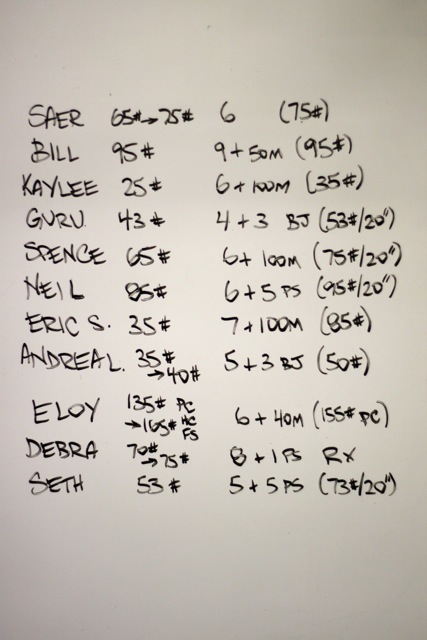 SAER 65# → 75# 6 (75#)
BILL 95# 9 + 50M (95#)
KAYLEE 25# 6 + 100M (35#)
GURU 43# 4 + 3 BJ (53#/20")
SPENCE 65# 6 + 100M (75#/20")
NEIL 85# 6 + 5 PS (95#/20")
ERIC S. 35# 7 + 100M (85#)
ANDREA L. 35# 5 + 3 BJ (50#)
→ 40#
ELOY 135# PC 6 + 40M (155# PC)
→ 105# HC
FS
DEBRA 70# 8 + 1 FS RX
→ 75#
SETH 53# 5 + 5 PS (73#/20")